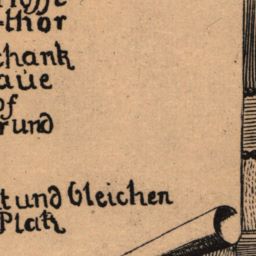 -thor
chank
aue
of
rund
t und Gleichen
Plak